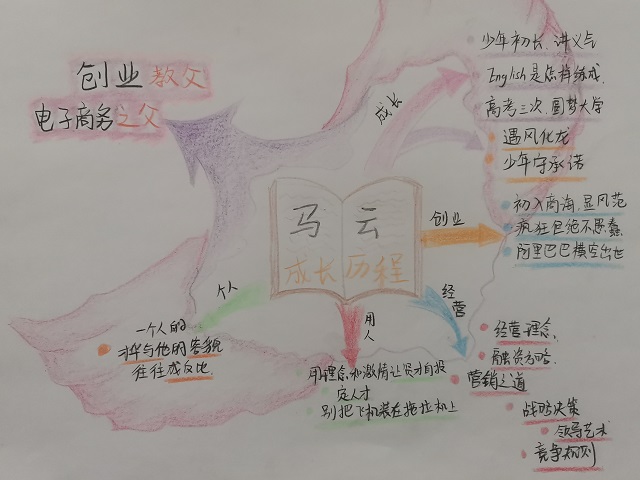 创业教父
电子商务之父
马云
成长历程
成长
少年初长,讲义气
English是怎样练成
高考三次,圆梦大学
遇风化龙
少年守承诺
创业
初入商海,显风范
疯狂但绝不愚蠢
阿里巴巴横空出世
经营
经营理念
融资方略
营销之道
战略决策
领导艺术
竞争规则
用人
用理念和激情让贤才自投
定人才
别把飞机装在拖拉机上
个人
一个人的
才华与他的容貌
往往成反比